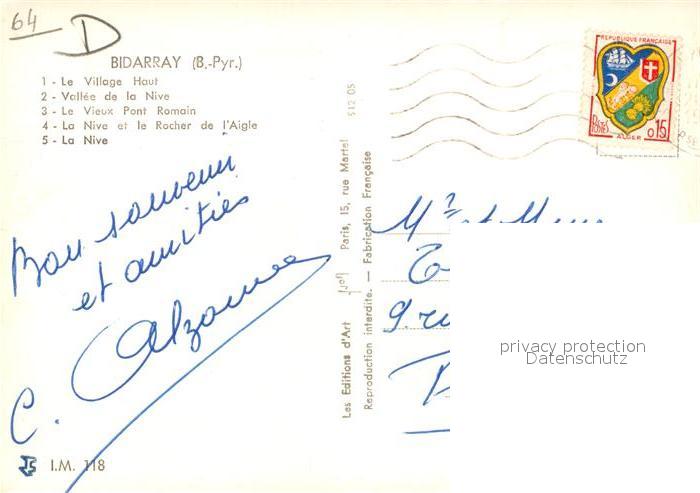 64
D
BIDARRAY (B.-Pyr.)
1 - Le Village Haut
2 - Vallée de la Nive
3 - Le Vieux Pont Romain
4 - La Nive et le Rocher de l'Aigle
5 - La Nive
Bon souvenir
et amitiés
C.
I.M. 118
Les Editions d'Art Paris, 15, rue Martel
Reproduction interdite. — Fabrication Française
S12 05
REPUBLIQUE FRANÇAISE
POSTES
0,15
ALGER
Mr et Mme
9 rue
privacy protection
Datenschutz